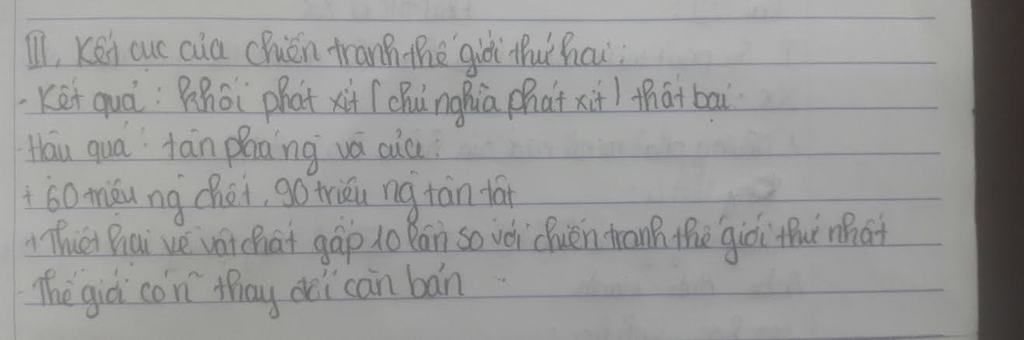 III, Kết cục của chiến tranh thế giới thứ hai:
- Kết quả: khối phát xít (chủ nghĩa phát xít) thất bại.
- Hậu quả: tàn phá nặng và của:
+ 60 triệu ng chết, 90 triệu ng tàn tật
+ Thiệt hại về vật chất gấp 10 lần so với chiến tranh thế giới thứ nhất
- Thế giới có n~ thay đổi căn bản